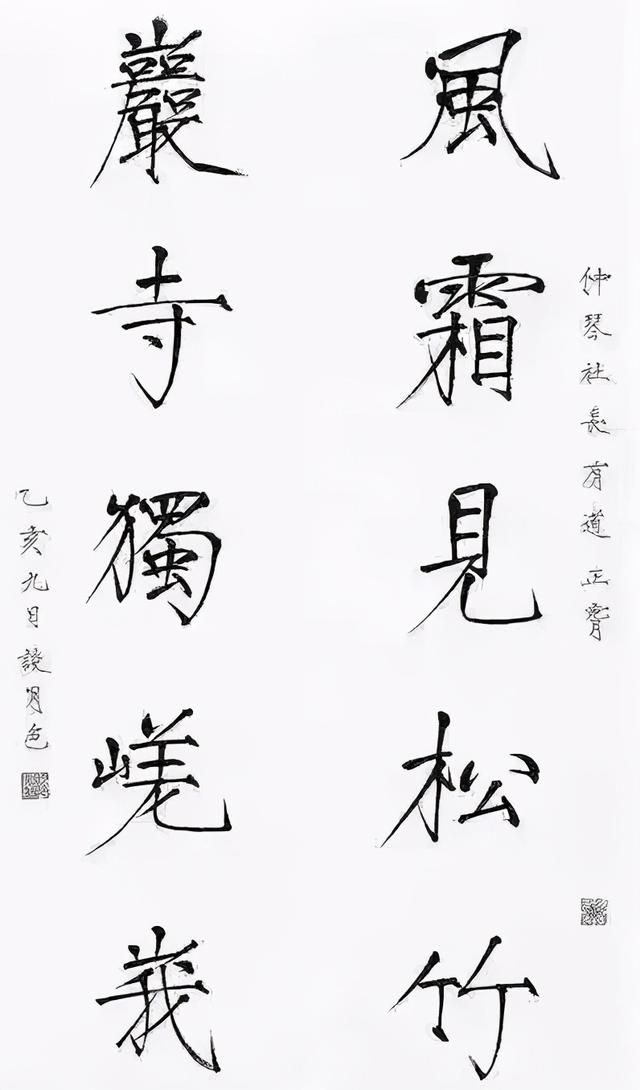 仲琴社長有道正
風霜見松竹
巖寺獨嵯峩
乙亥九月談月色